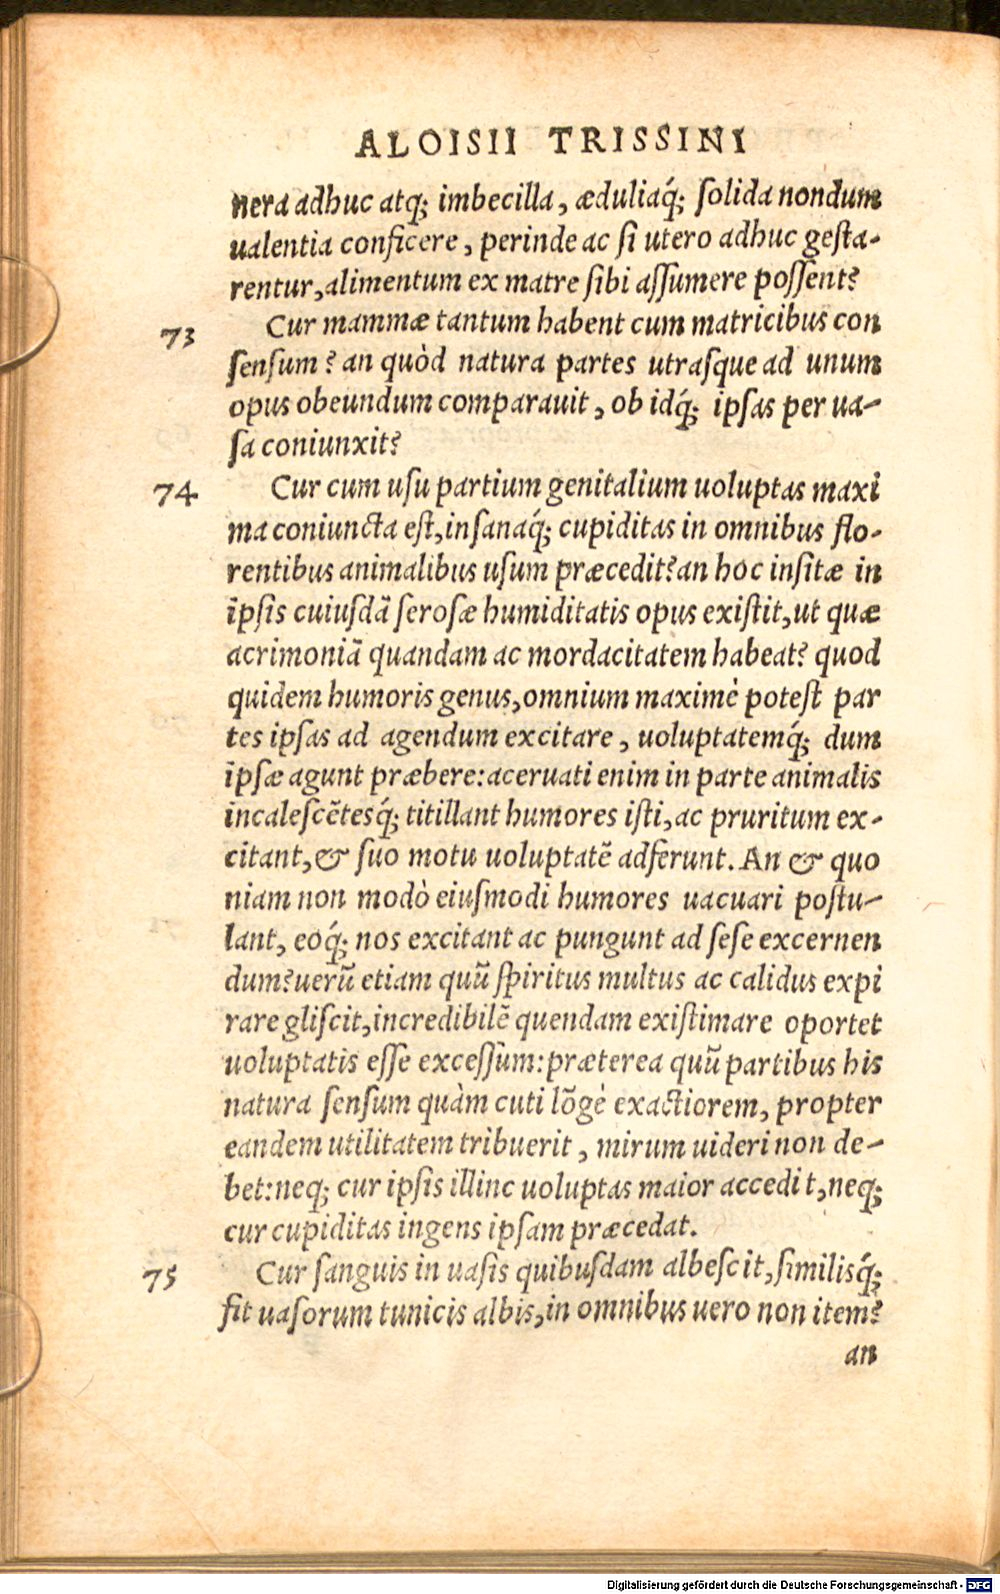 ALOISII TRISSINI
nera adhuc atq; imbecilla, æduliaq́; ſolida nondum
ualentia conficere, perinde ac ſi utero adhuc geſta-
rentur, alimentum ex matre ſibi aſſumere poſſent?
73 Cur mammæ tantum habent cum matricibus con
ſenſum? an quòd natura partes utraſque ad unum
opus obeundum comparauit, ob idq́; ipſas per ua-
ſa coniunxit?
74 Cur cum uſu partium genitalium uoluptas maxi
ma coniuncta eſt, inſanaq́; cupiditas in omnibus flo-
rentibus animalibus uſum præcedit? an hoc inſitæ in
ipſis cuiuſdā ſeroſæ humiditatis opus exiſtit, ut quæ
acrimoniā quandam ac mordacitatem habeat? quod
quidem humoris genus, omnium maximè poteſt par
tes ipſas ad agendum excitare, uoluptatemq́; dum
ipſæ agunt præbere: aceruati enim in parte animalis
incaleſcētesq́; titillant humores iſti, ac pruritum ex-
citant, & ſuo motu uoluptatē adferunt. An & quo
niam non modò eiuſmodi humores uacuari poſtu-
lant, eoq́; nos excitant ac pungunt ad ſeſe excernen
dum? uerū etiam quū ſpiritus multus ac calidus expi
rare gliſcit, incredibilē quendam exiſtimare oportet
uoluptatis eſſe exceſſum: præterea quū partibus his
natura ſenſum quàm cuti lōgè exactiorem, propter
eandem utilitatem tribuerit, mirum uideri non de-
bet: neq; cur ipſis illinc uoluptas maior accedit, neq;
cur cupiditas ingens ipſam præcedat.
75 Cur ſanguis in uaſis quibuſdam albeſcit, ſimilisq́;
fit uaſorum tunicis albis, in omnibus uero non item?
an
Digitalisierung gefördert durch die Deutsche Forschungsgemeinschaft - DFG